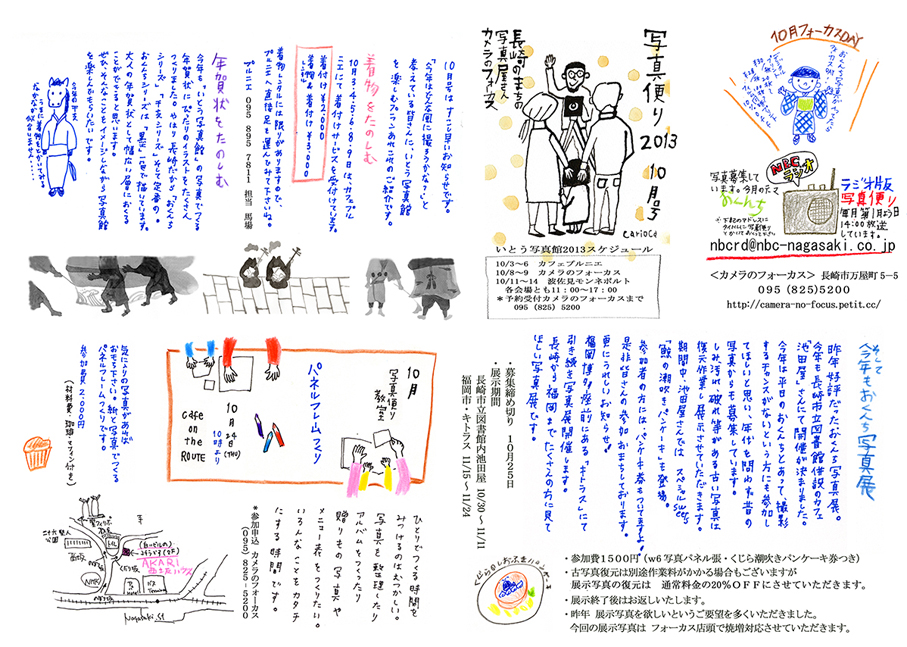 写真便り 2013 10月号
長崎のまちの
写真屋さん
カメラのフォーカス
carioca
いとう写真館2013スケジュール
10/3〜6 カフェブルニエ
10/8〜9 カメラのフォーカス
10/11〜14 波佐見モンネポルト
各会場とも11:00〜17:00
*予約受付カメラのフォーカスまで
095(825)5200
10月フォーカスDAY
NBC
ラジオ
写真募集して
います。今月のテーマ
おくんち
ラジオ版
写真便り
毎月第1月曜日
14:00放送
しています。
nbcrd@nbc-nagasaki.co.jp
<カメラのフォーカス> 長崎市万屋町5−5
095(825)5200
http://camera-no-focus.petit.cc/
10月号はすこし早いお知らせです。
今年はどんな風に撮ろうかなぁ、と
考えている皆さんに、いとう写真館
を楽しむプランあれこれのご紹介です。
着物をたのしむ
10月3・4・5・6・8・9日は、カフェブル
ニエにて着付けサービスを受付けています。
着付け ¥2,000
着物&着付け ¥3,000
着物レンタルには限りがありますので、
ブルニエへ直接足を運んでみて下さいね。
ブルニエ 095 895 7811 担当 馬場
年賀状をたのしむ
今年も、いとう写真館の写真でつくる
年賀状にぴったりのイラストをたくさん
つくりました。やはり長崎だから「おくんち
シリーズ」、「干支シリーズ」そして定番の。
おくんちシリーズは、「墨絵」一色で描いています。
大人の年賀状として幅広い層におくる
ことができると思います。
ぜひ、そんなことをイメージしながら写真館
を楽しんでもらいたいです。
そして
今年もおくんち写真展
昨年好評だったおくんち写真展。
今年も長崎市立図書館併設のカフェ
池田屋さんにて開催が決まりました。
今年は平日のおくんちとあって撮影
するチャンスがないという方にも参加し
てほしいと思い、年代を問わず昔の
写真からも募集しています。
しみ、汚れ、破れ等がある古い写真は
復元作業し展示させていただきます。
期間中、池田屋さんではスペシャルsweets
「鯨の潮吹きパンケーキ」も登場。
参加者の方にはパンケーキ券もついてますよー
是非皆さんの参加おまちしております。
更にうれしいお知らせ。
福岡博多駅前にある「キトラス」にて
引き続き写真展開催します。
長崎から福岡までたくさんの方に見て
ほしい写真展です。
・募集締め切り 10月25日
・展示期間
長崎市立図書館内池田屋 10/30〜11/11
福岡市・キトラス 11/15〜11/24
・参加費1500円(w6写真パネル張・くじら潮吹きパンケーキ券つき)
・古写真復元は別途作業料がかかる場合もございますが
展示写真の復元は 通常料金の20%OFFにさせていただきます。
・展示終了後はお返しいたします。
・昨年 展示写真を欲しいというご要望を多くいただきました。
今回の展示写真は フォーカス店頭で焼増対応させていただきます。
10月
写真便り
教室
パネルフレームづくり
10月24日(THU)
10時より
cafe
on
the
ROUTE
お気に入りの写真があれば
おもち下さい。紙と写真でつくる
パネルフレームづくりです。
参加費 2,000円
(材料費・珈琲・マフィン付き)
ひとりでつくる時間を
みつけるのはむつかしい。
写真を整理したり
アルバムをつくったり
贈りもの写真や
メニュー表をつくりたい。
いろんなことをカタチ
にする時間です。
*参加申込 カメラのフォーカス
(095)825-5200
AKARI
Nagasaki St